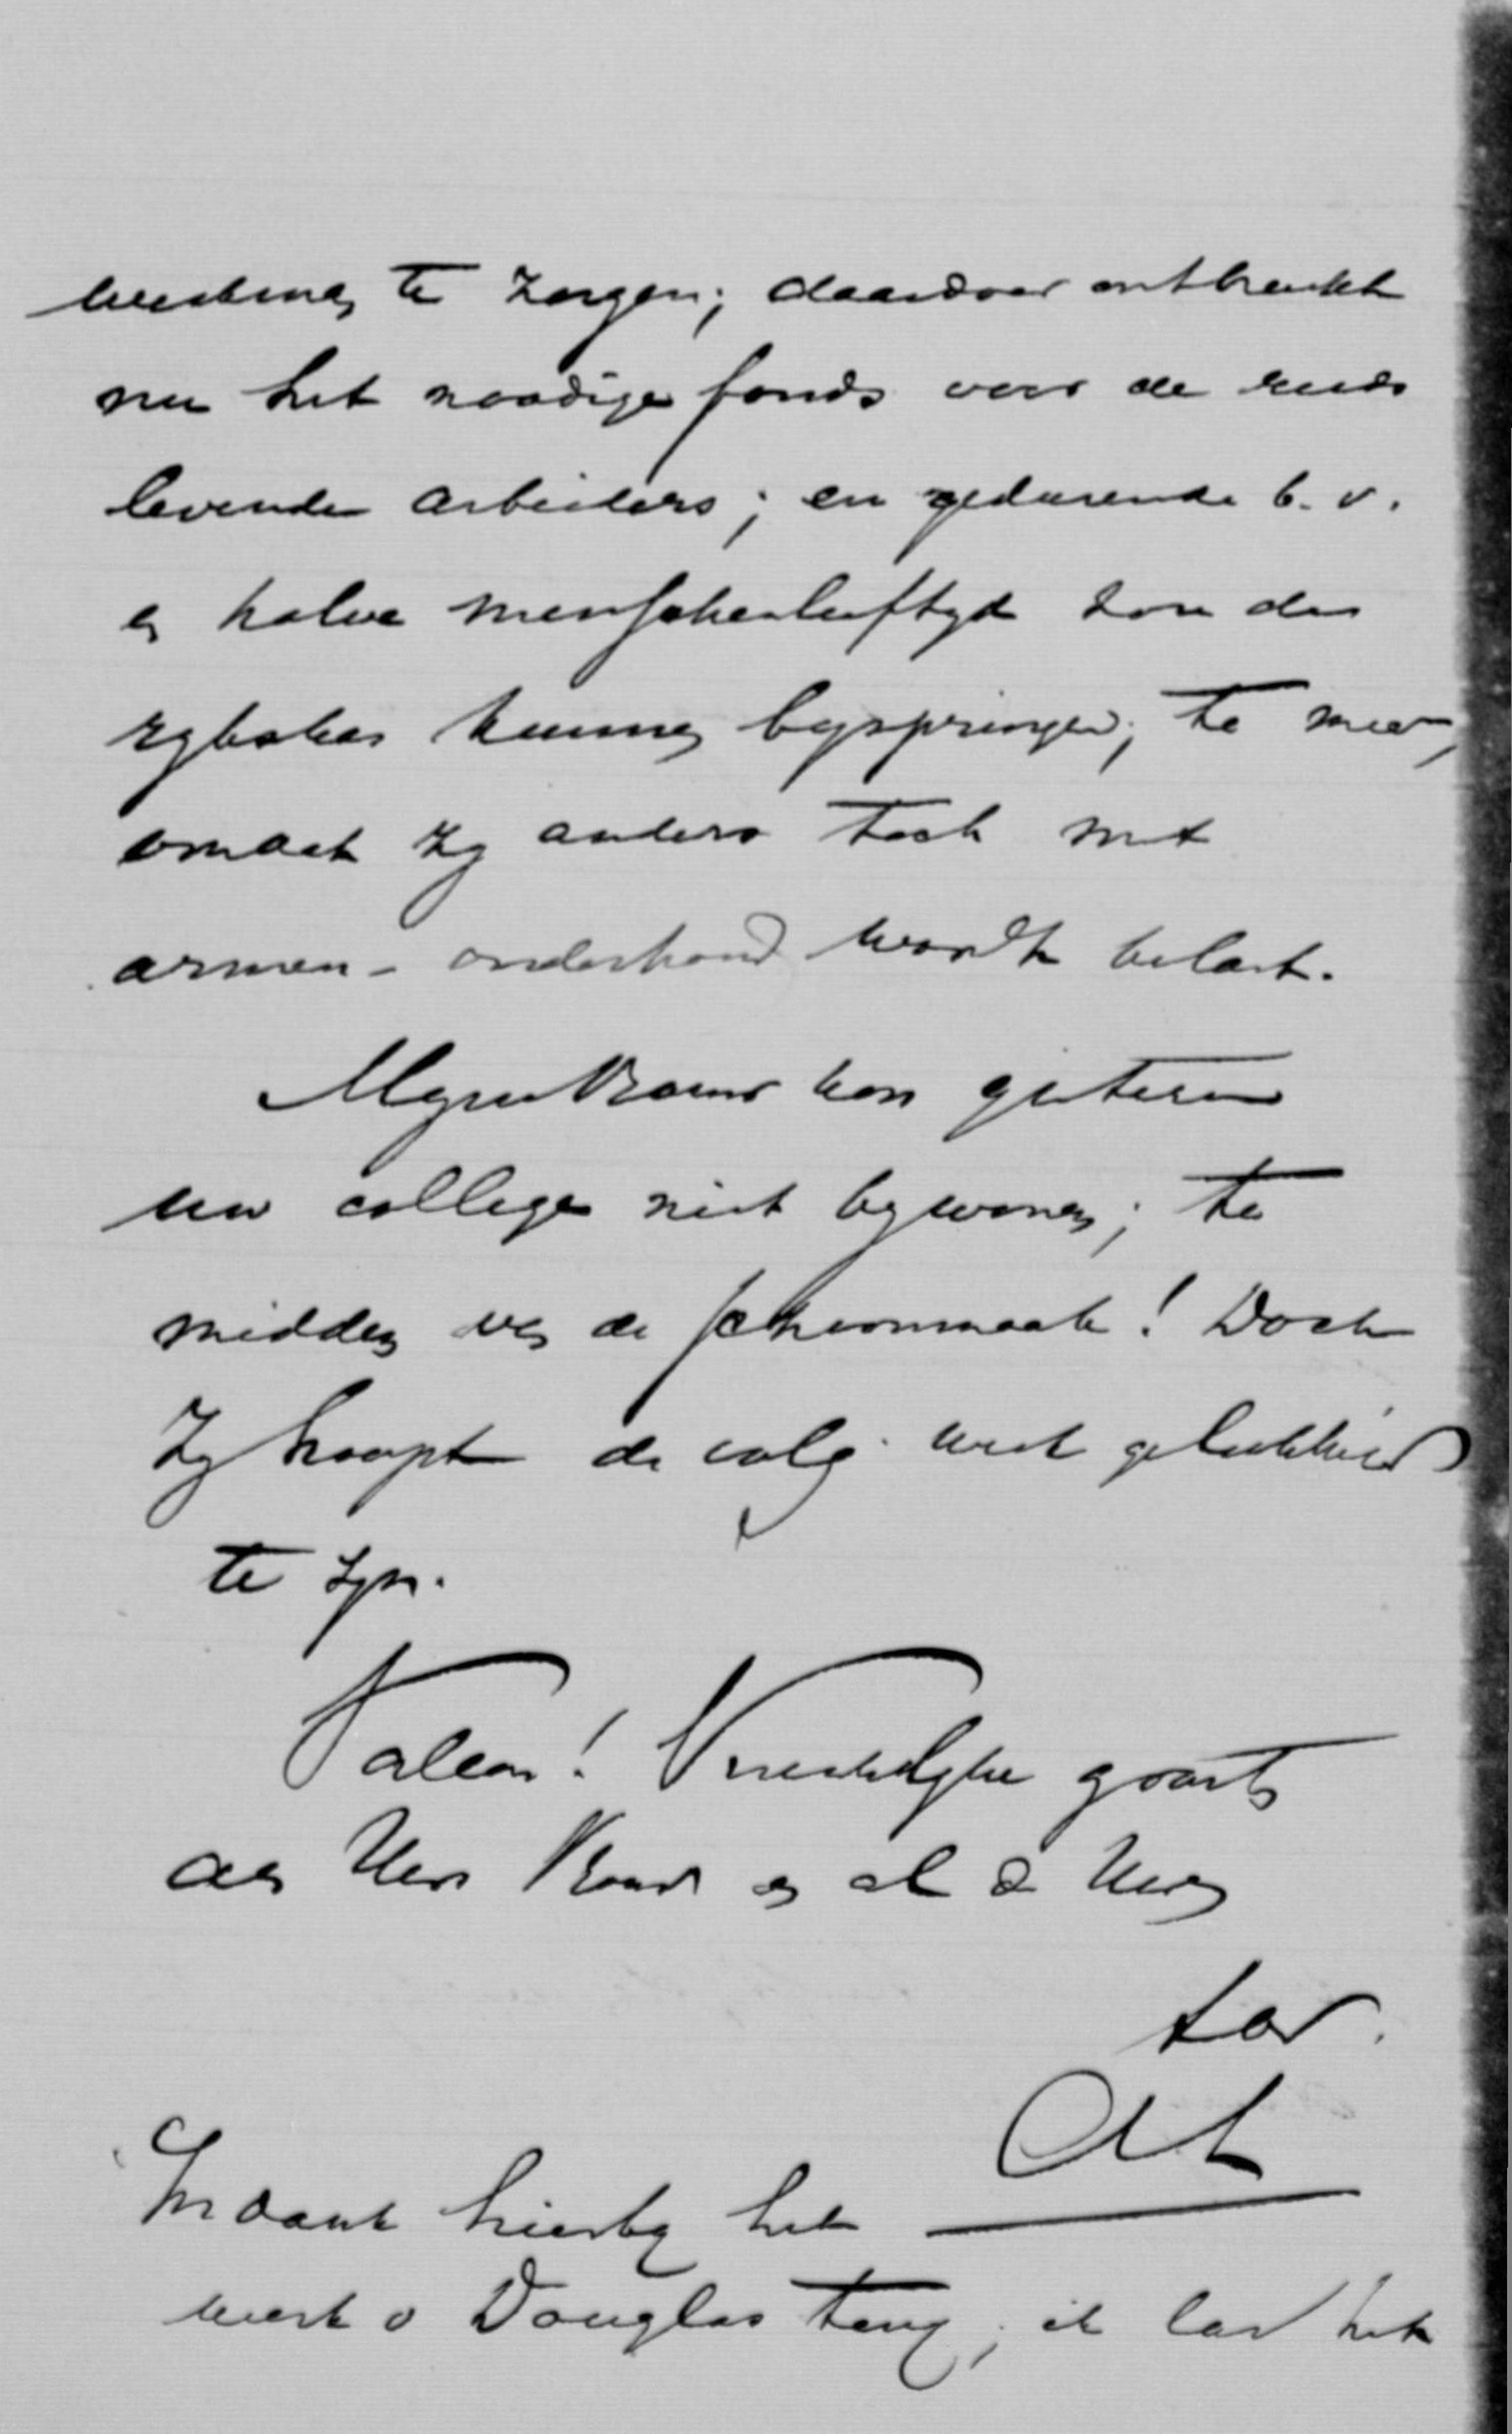 te zorgen; daardoor ontbreekt
nu het noodige fonds voor de reeds
levende arbeiders; en gedurende b.v.
e halve menschenleeftyd zou de
rykskas kunnen byspringen; te meer,
omdat zy anders toch met
armen-onderhoud wordt belast.
Myn vrouw kon gisteren
uw college niet bywonen; te
midden van de schoonmaak! Doch
Zy hoopt de volg. week gelukkiger
te zyn.
Valeas! Vriendelyke groeten
aan Uwe Vrouw en al de Uwen
tav.
In dank hierby het
werk v Douglas terug; ik las het